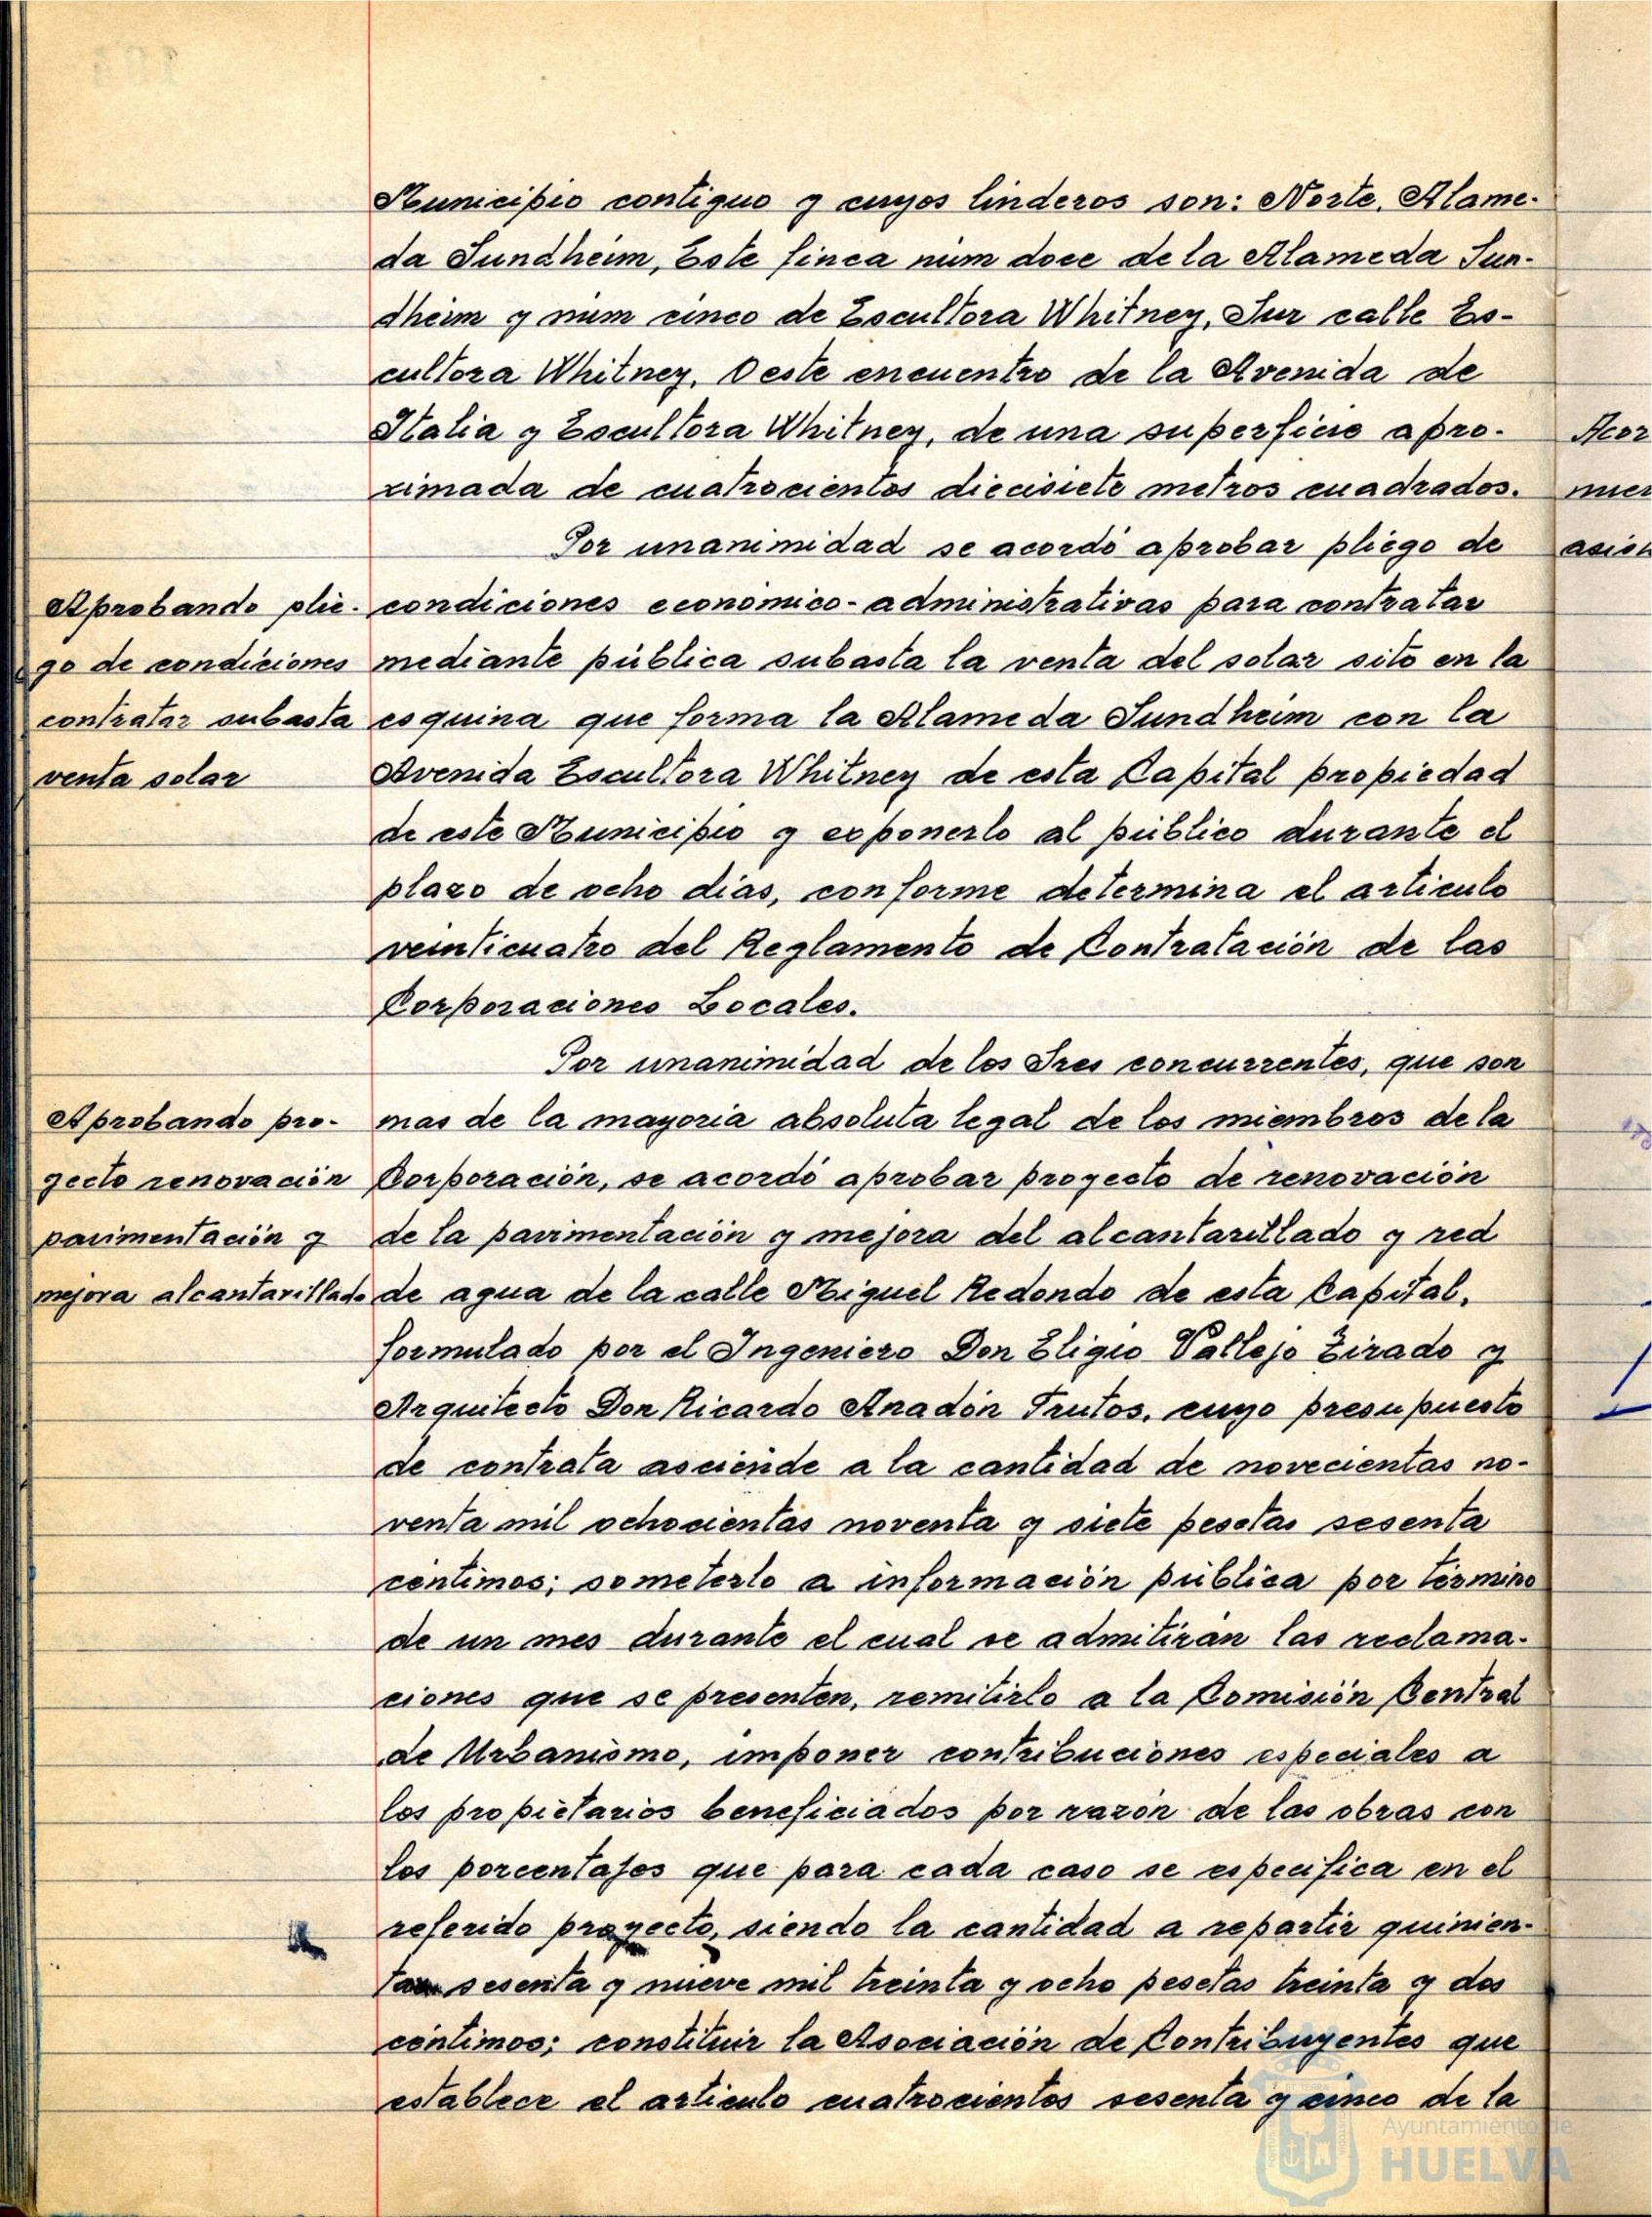 Municipio contiguo y cuyos linderos son: Norte, Alame-
da Sundheim, Este finca núm doce de la Alameda Sun-
dheim y núm cinco de Escultora Whitney, Sur calle Es-
cultora Whitney, Oeste encuentro de la Avenida de
Italia y Escultora Whitney, de una superficie apro-
ximada de cuatrocientos diecisiete metros cuadrados.
Por unanimidad se acordó aprobar pliego de
Aprobando plie-
go de condiciones
contratar subasta
venta solar
condiciones económico-administrativas para contratar
mediante pública subasta la venta del solar sito en la
esquina que forma la Alameda Sundheim con la
Avenida Escultora Whitney de esta Capital propiedad
de este Municipio y exponerlo al público durante el
plazo de ocho dias, conforme determina el articulo
veinticuatro del Reglamento de Contratación de las
Corporaciones Locales.
Por unanimidad de los Sres concurrentes, que son
Aprobando pro-
yecto renovación
pavimentación y
mejora alcantarillado
mas de la mayoria absoluta legal de los miembros de la
Corporación, se acordó aprobar proyecto de renovación
de la pavimentación y mejora del alcantarillado y red
de agua de la calle Miguel Redondo de esta Capital,
formulado por el Ingeniero Don Eligio Vallejo Zirado y
Arquitecto Don Ricardo Anadón Frutos, cuyo presupuesto
de contrata asciende a la cantidad de novecientas no-
venta mil ochocientas noventa y siete pesetas sesenta
céntimos; someterlo a información pública por término
de un mes durante el cual se admitirán las reclama-
ciones que se presenten, remitirlo a la Comisión Central
de Urbanismo, imponer contribuciones especiales a
los propietarios beneficiados por razón de las obras con
los porcentajes que para cada caso se especifica en el
referido proyecto, siendo la cantidad a repartir quinien-
tas sesenta y nueve mil treinta y ocho pesetas treinta y dos
céntimos; constituir la Asociación de Contribuyentes que
establece el articulo cuatrocientos sesenta y cinco de la
Acor
asion
Ayuntamiento de
HUELVA